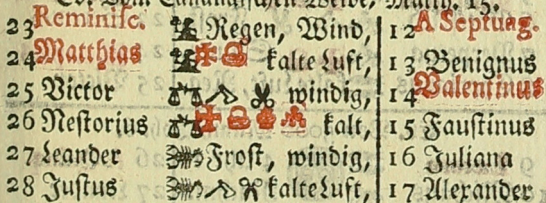 Ev. Vom Cananäischen Weibe, Matth. 15.
23 Reminisc. Regen, Wind, 12 A Septuag.
24 Matthias kalte Luft, 13 Benignus
25 Victor windig, 14 Valentinus
26 Nestorius kalt, 15 Faustinus
27 Leander Frost, windig, 16 Juliana
28 Justus kalte Luft, 17 Alexander